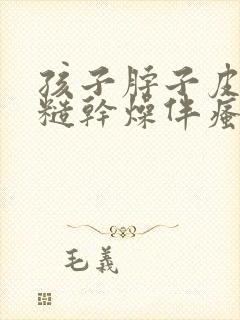 孩子脖子皮
糙幹燥伴瘙
毛義